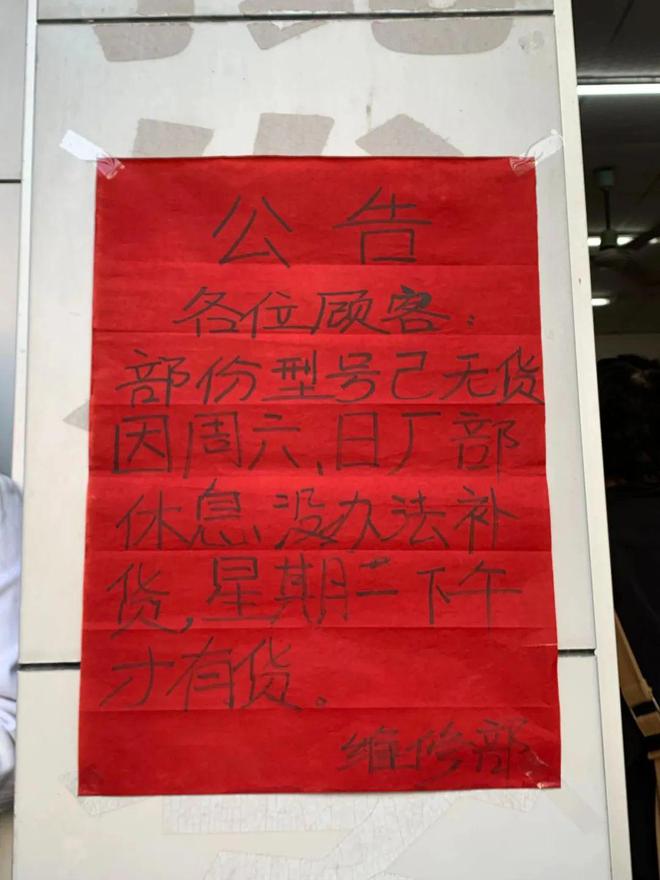 公告
各位顾客：
部份型号己无货
因周六、日厂部
休息没办法补
货,星期二下午
才有货。
维修部